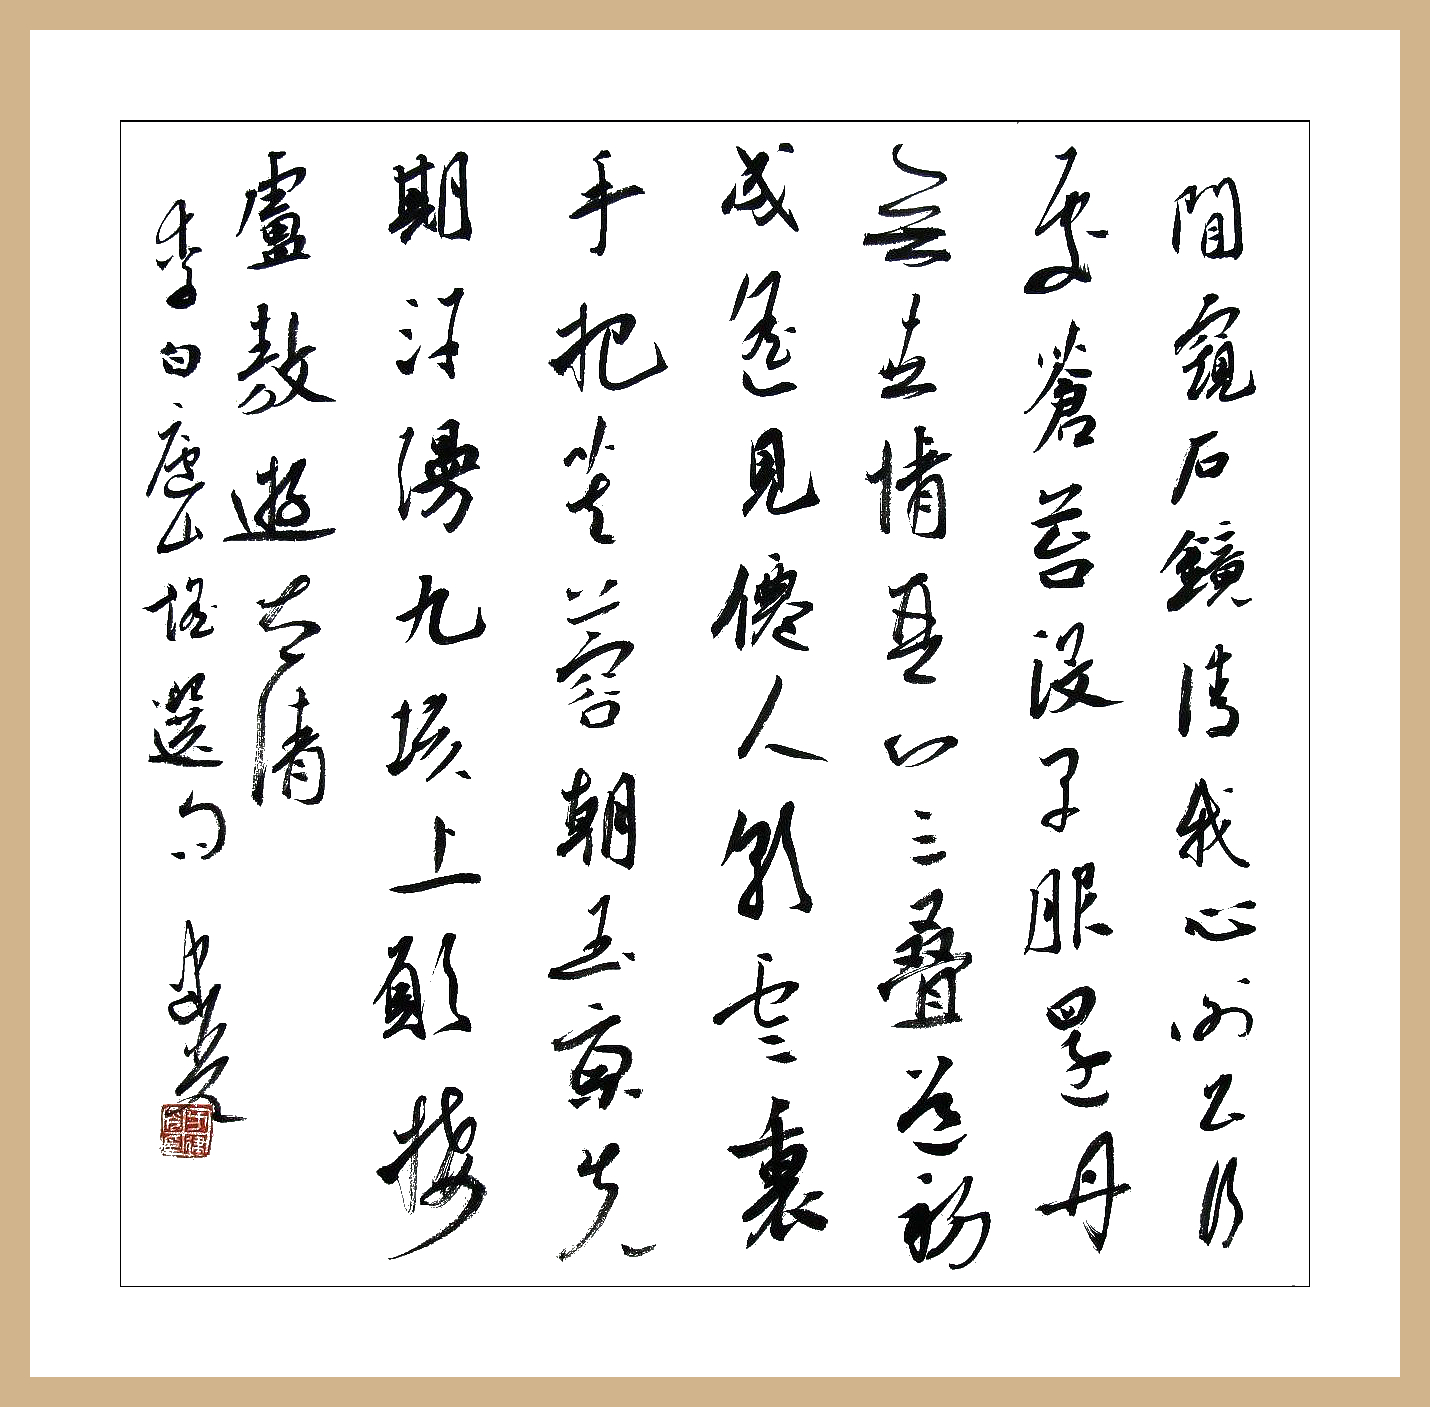 閒窺石鏡清我心謝公行
處蒼苔没早服還丹
無世情琴心三叠道初
成遙見僊人彩雲裏
手把芙蓉朝玉京先
期汗漫九垓上願接
盧敖遊太清
李白廬山謠選句